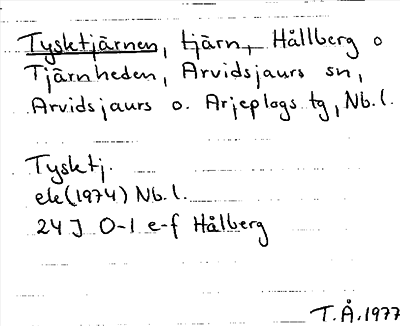 Tysktjärnen, tjärn, Hållberg o
Tjärnheden, Arvidsjaurs sn,
Arvidsjaurs o. Arjeplogs tg, Nb.l.
Tysktj.
ek(1974) Nb.l.
24 J 0-1 e-f Hålberg
T.Å.1977